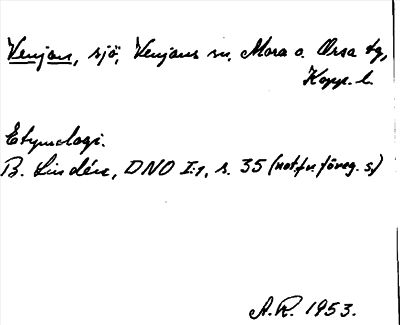 Venjan, sjö, Venjans sn, Mora o. Orsa tg,
Kopp. l.
Etymologi.
B. Lindén, DNO I:1, s. 35 (not fr. föreg. s.)
A.R. 1953.